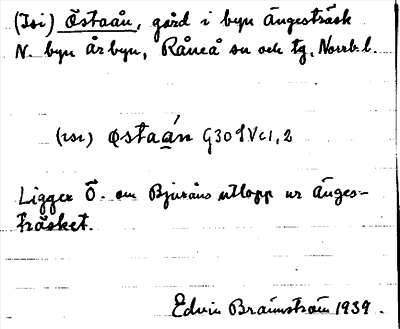 (Isi) Östaån, gård i byn Ängesträsk
N. byn Årbyn, Råneå sn och tg, Norrb. l.
(isi) østaán G309Vc1,2
Ligger Ö. om Bjuråns utlopp ur Änges-
träsket.
Edvin Brännström 1939.